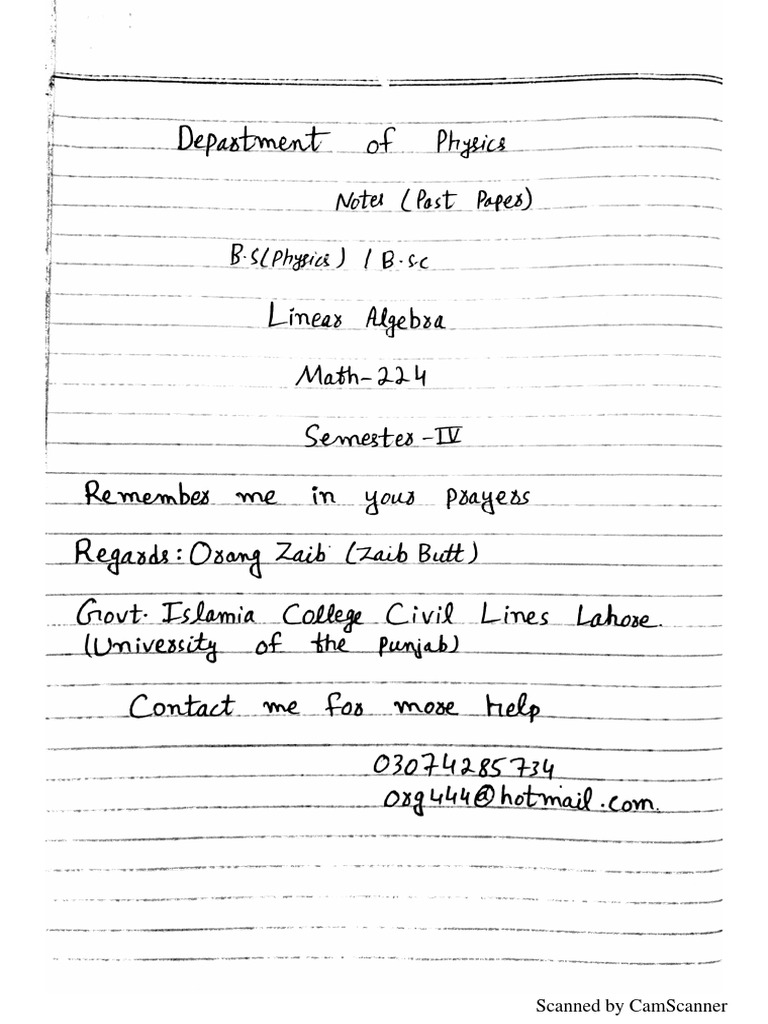 Department of Physics
Notes (Past Paper)
B.S(Physics) / B.sc
Linear Algebra
Math-224
Semester-IV
Remember me in your prayers
Regards: Orang Zaib (Zaib Butt)
Govt. Islamia College Civil Lines Lahore.
(University of the punjab)
Contact me for more help
03074285734
org444@hotmail.com.
Scanned by CamScanner